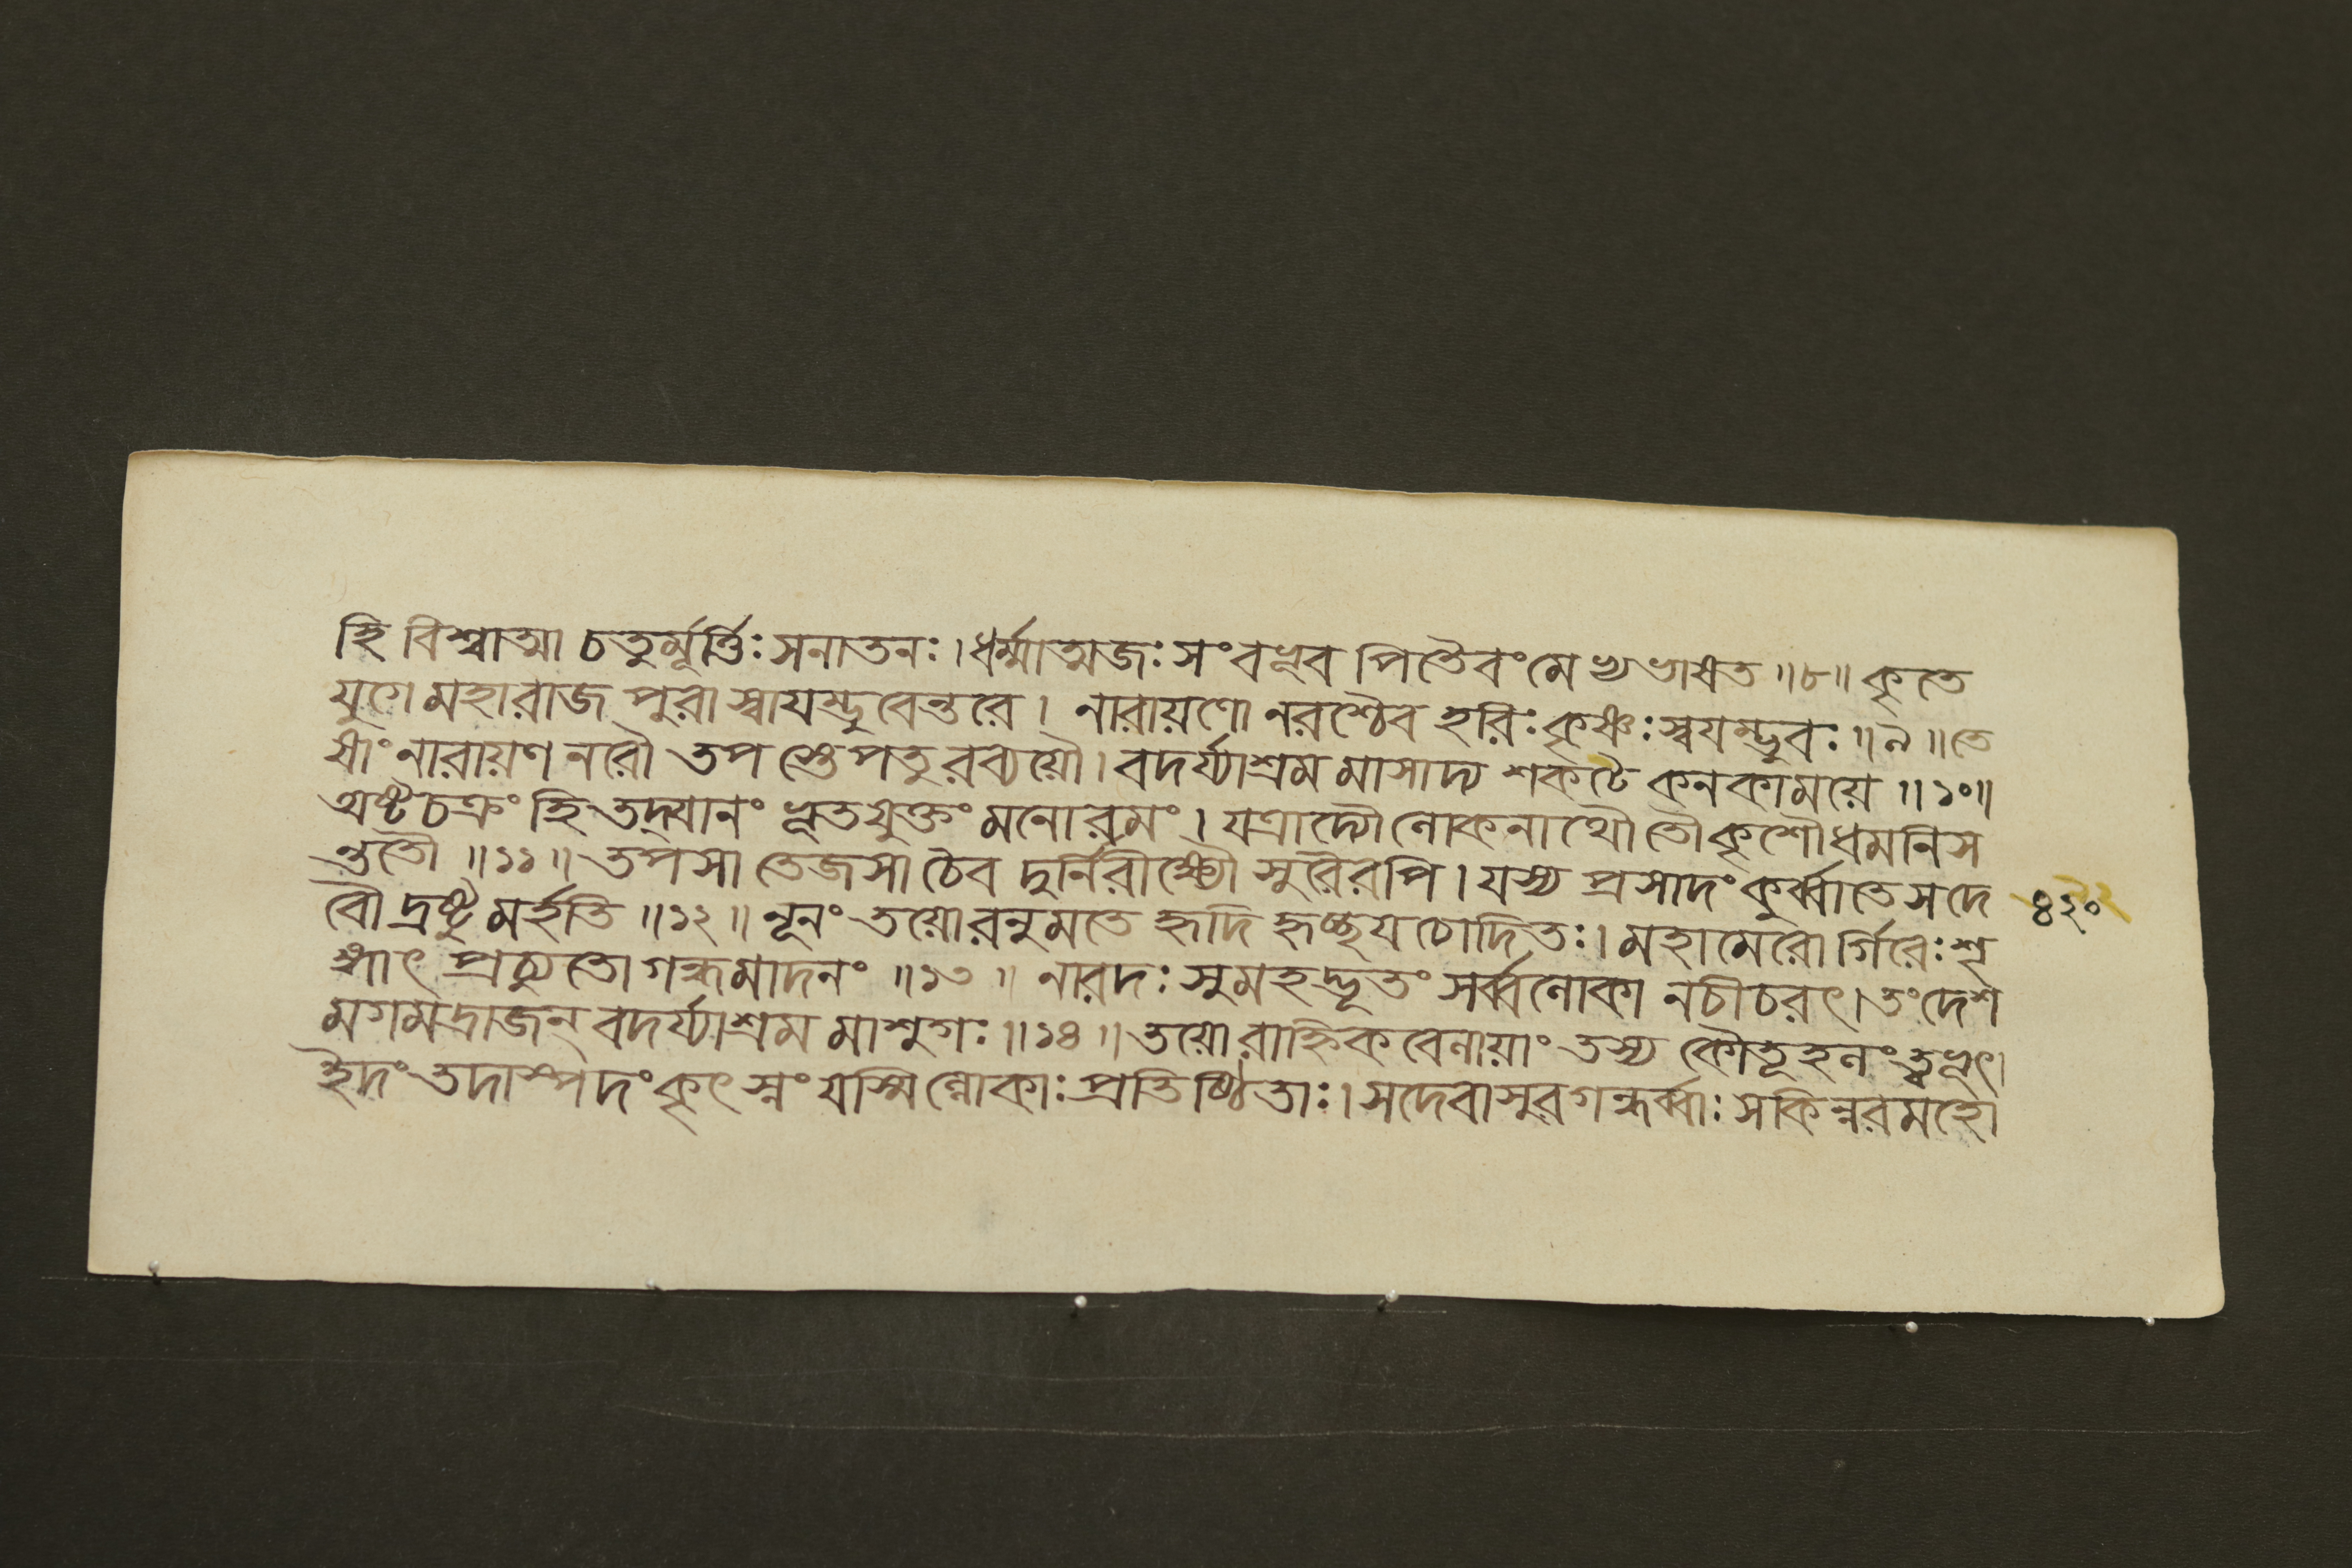 হি বিশ্বাত্মা চতুর্ম্মূর্ত্তিঃ সনাতনঃ। ধর্ম্মাত্মজঃ সংবভূব পিতৈবং মেভ্যভাষত ॥৮॥ কৃতে
যুগে মহারাজ পুরা স্বায়ম্ভুবেন্তরে। নারায়ণো নরশ্চৈব হরিঃ কৃষ্ণঃ স্বয়ম্ভুবঃ ॥৯॥ তে
ষাং নারায়ণ নরৌ তপস্তেপতুরব্যয়ৌ। বদর্য্যাশ্রমমাসাদ্য শকটে কনকাময়ে ॥১০॥
অষ্টচক্রং হি তদ্যানং ভূতযুক্তং মনোরমং। যত্রাদ্যৌ লোকনাথৌ তৌ কৃশৌ ধমনিস
ন্ততৌ ॥১১॥ তপসা তেজসা চৈব দুর্নিরীক্ষ্যৌ সুরৈরপি। যস্য প্রসাদং কুর্ব্বাতে স দে
বৌ দ্রষ্টুমর্হতি ॥১২॥ নূনং তয়োরনুমতে হৃদি হৃচ্ছয়চোদিতঃ। মহামেরোর্গিরেঃ শৃ
ঙ্গাৎ প্রচ্যুতো গন্ধমাদনং ॥১৩॥ নারদঃ সুমহদ্ভূতং সর্ব্বলোকানচীচরৎ। তং দেশ
মগমদ্রাজন্ বদর্য্যাশ্রমমাশুগঃ ॥১৪॥ তয়োরাহ্নিকবেলায়াং তস্য কৌতূহলং ত্বভূৎ।
ইদং তদাস্পদং কৃৎস্নং যস্মিল্লোকাঃ প্রতিষ্ঠিতাঃ। সদেবাসুরগন্ধর্ব্বাঃ সকিন্নরমহো
৪২০